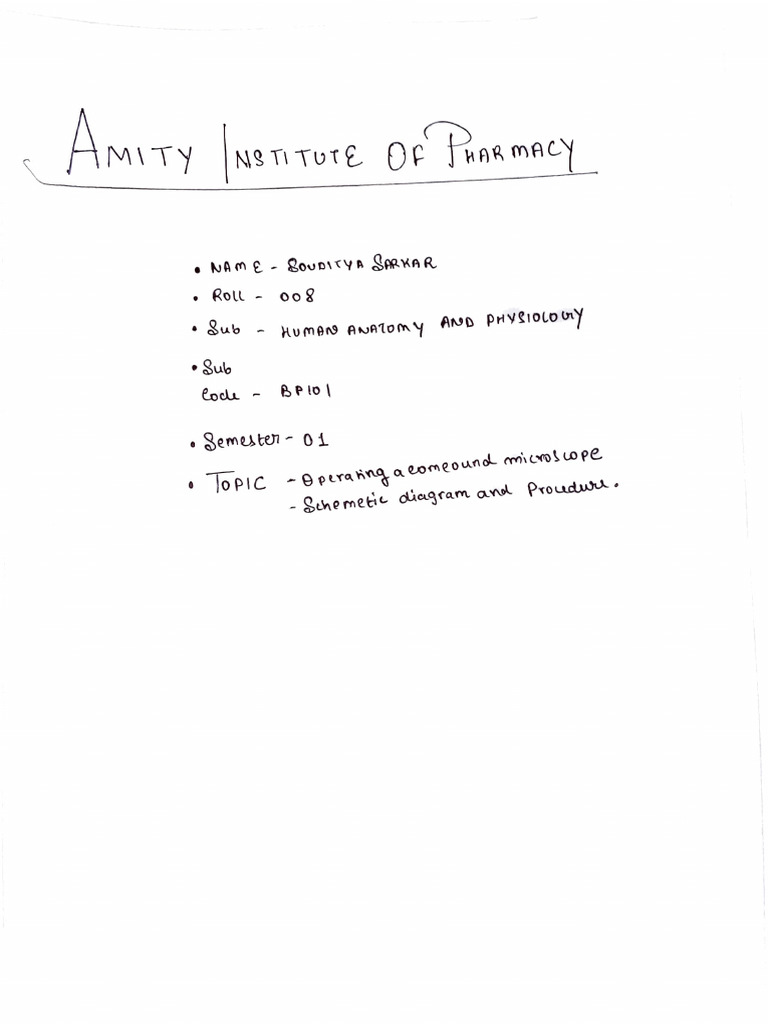 AMITY INSTITUTE OF PHARMACY
• NAME - SOUDITYA SARKAR
• Roll - 008
• Sub - HUMAN ANATOMY AND PHYSIOLOGY
• Sub
Code - BP101
• Semester - 01
• TOPIC - Operating a comeound microscope
- Schemetic diagram and Procedure.